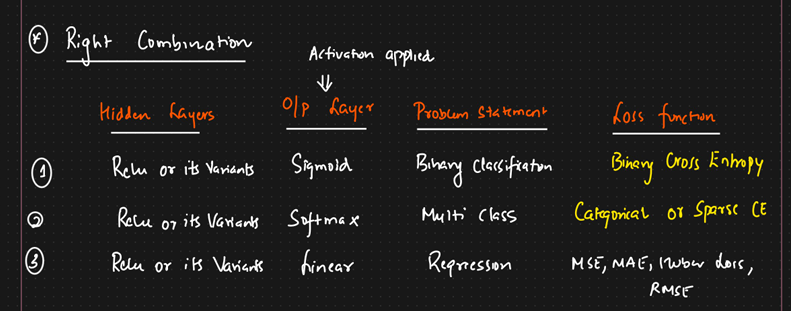 * Right Combination
Activation applied
Hidden Layers O/P Layer Problem Statement Loss function
1 Relu or its Variants Sigmoid Binary Classification Binary Cross Entropy
2 Relu or its Variants Softmax Multi Class Categorical or Sparse CE
3 Relu or its Variants Linear Regression MSE, MAE, Huber Loss,
RMSE